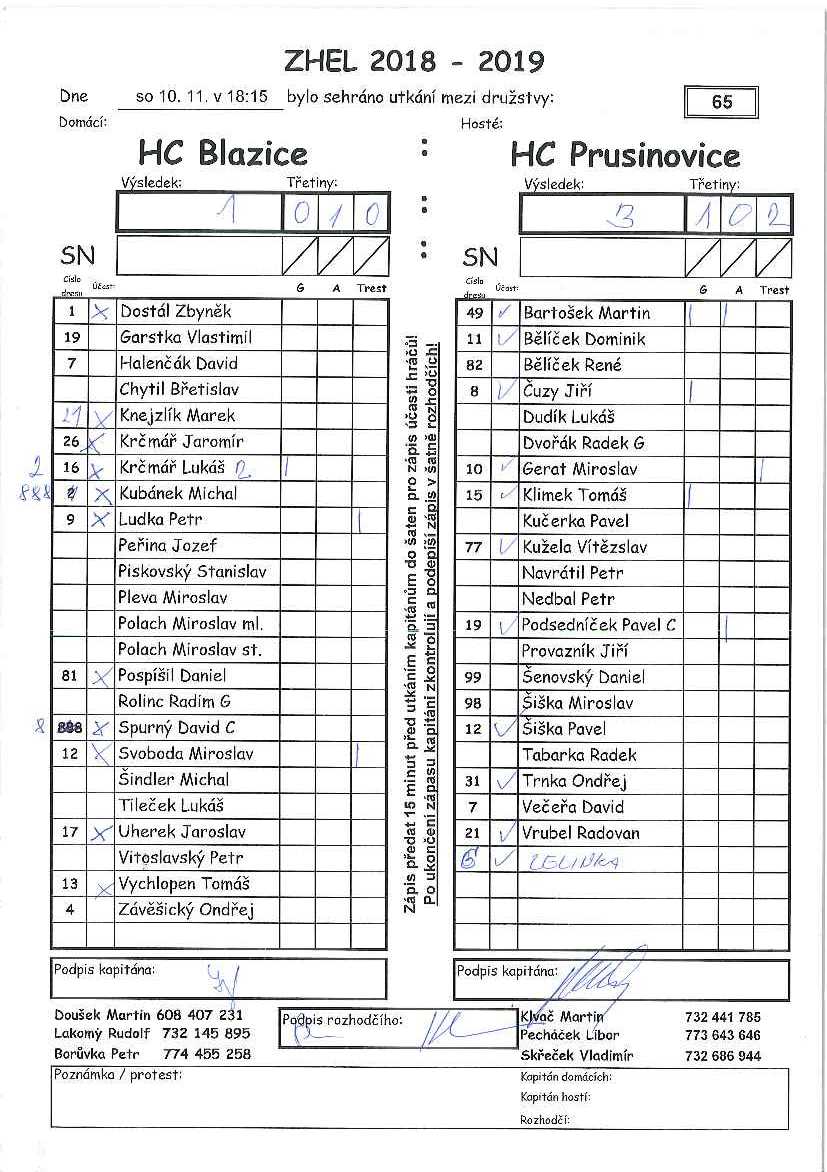 ZHEL 2018 - 2019
Dne so 10. 11. v 18:15 bylo sehráno utkání mezi družstvy: 65
Domácí: Hosté:
HC Blazice : HC Prusinovice
Výsledek: Třetiny: : Výsledek: Třetiny:
1 0 1 0 3 1 0 2
SN : SN
Číslo dresu Účast: G A Trest Číslo dresu Účast: G A Trest
1 x Dostál Zbyněk 49 ✓ Bartošek Martin | |
19 Garstka Vlastimil 11 ✓ Bělíček Dominik
7 Halenčák David 82 Bělíček René
Chytil Břetislav 8 ✓ Čuzy Jiří |
21 x Knejzlík Marek Dudík Lukáš
26 x Krčmář Jaromír Dvořák Radek G
2 16 x Krčmář Lukáš 2 | 10 ✓ Gerat Miroslav |
888 2 x Kubánek Michal 15 ✓ Klimek Tomáš |
9 x Ludka Petr | Kučerka Pavel
Peřina Jozef 77 ✓ Kužela Vítězslav
Piskovský Stanislav Navrátil Petr
Pleva Miroslav Nedbal Petr
Polach Miroslav ml. 19 ✓ Podsedníček Pavel C |
Polach Miroslav st. Provazník Jiří
81 x Pospíšil Daniel 99 Šenovský Daniel
Rolinc Radim G 98 Šiška Miroslav
8 888 x Spurný David C 12 ✓ Šiška Pavel
12 x Svoboda Miroslav | Tabarka Radek
Šindler Michal 31 ✓ Trnka Ondřej
Tileček Lukáš 7 Večeřa David
17 x Uherek Jaroslav 21 ✓ Vrubel Radovan
Vitoslavský Petr 6 ✓ ZELINKA
13 x Vychlopen Tomáš
4 Závěšický Ondřej
Zápis předat 15 minut před utkáním kapitánům do šaten pro zápis účasti hráčů!
Po ukončení zápasu kapitáni zkontrolují a podepíší zápis v šatně rozhodčích!
Podpis kapitána: Podpis kapitána:
Doušek Martin 608 407 231 Podpis rozhodčího: Klvač Martin 732 441 785
Lakomý Rudolf 732 145 895 Pecháček Libor 773 643 646
Borůvka Petr 774 455 258 Skřeček Vladimír 732 686 944
Poznámka / protest: Kapitán domácích:
Kapitán hostí:
Rozhodčí: